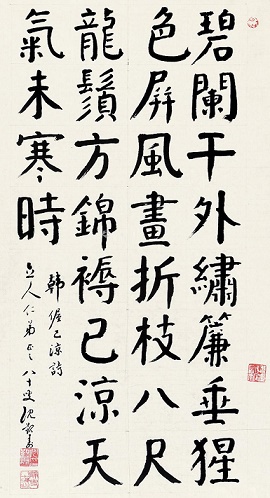 碧闌干外繡簾垂猩
色屏風畫折枝八尺
龍鬚方錦褥已涼天
氣未寒時
韓偓已涼詩
人仁弟正之 八十叟沈